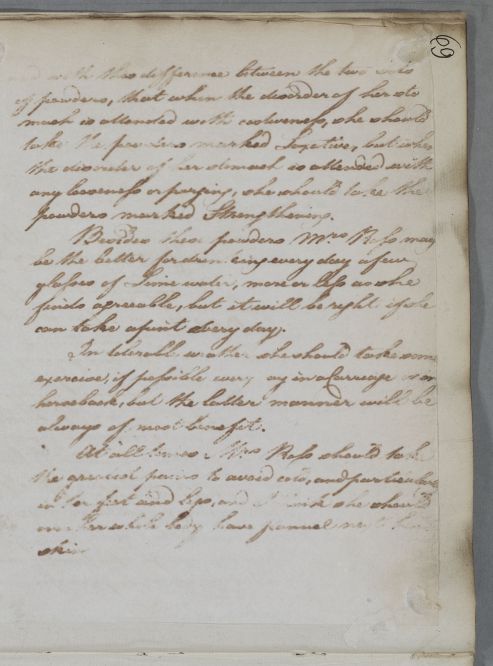 69
with this difference between the two sets
of powders, that when the disorder of her sto
mach is attended with costiveness, she should
take the powders marked Laxative, but when
the disorder of her stomach is attended with
any looseness or purging, she should take the
powders marked Strengthening.
Besides these powders Mrs Ross may
be the better for drinking every day a few
glasses of Lime water, more or less as she
finds agreeable, but it will be right if she
can take a pint every day.
In tolerable weather she should take some
exercise, if possible every day in a Carriage or on
horseback, but the latter manner will be
always of most benefit.
At all times Mrs Ross should take
the greatest pains to avoid cold, and particularly
in her feet and legs, and I wish she should
over her whole body have flannel next her
skin